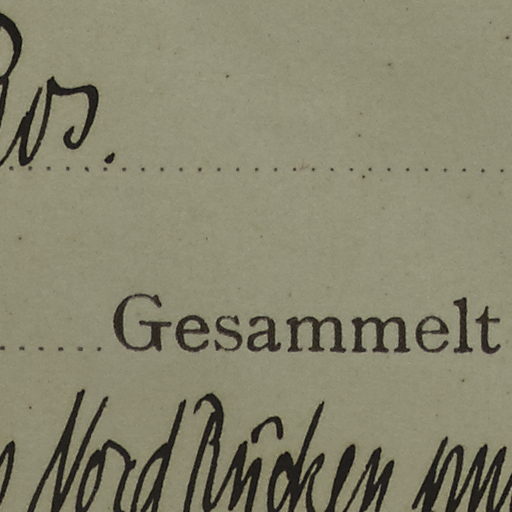 Bos.
Gesammelt
Nord Rücken